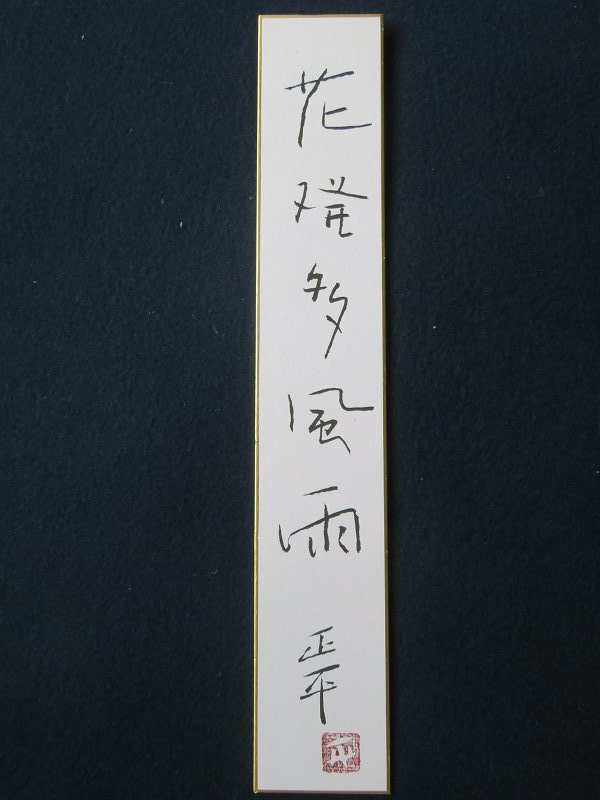 花発多風雨
正平